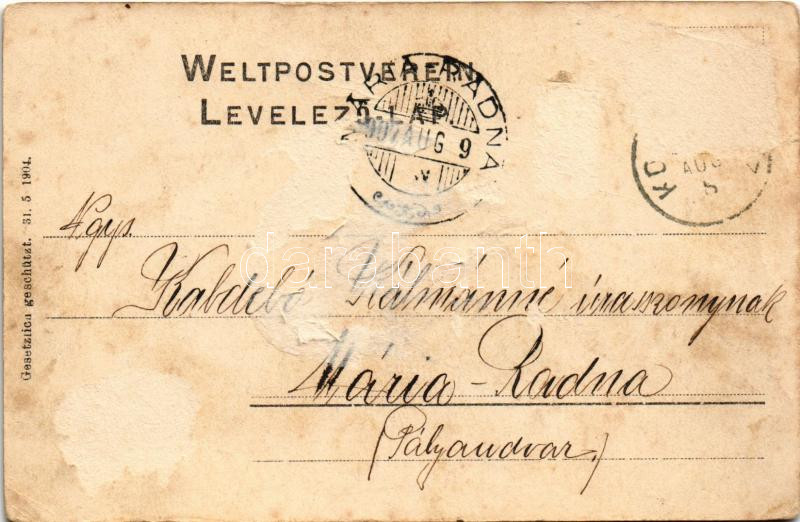 WELTPOSTVEREIN
LEVELEZŐ-LAP.
MÁRIA-RADNA
907 AUG 9
AUG
5
Gesetzlich geschützt. 31. 5 1904.
Ngys.
Kabdebó Kálmánné úrasszonynak
Mária-Radna
(Pályaudvar.)
darabanth